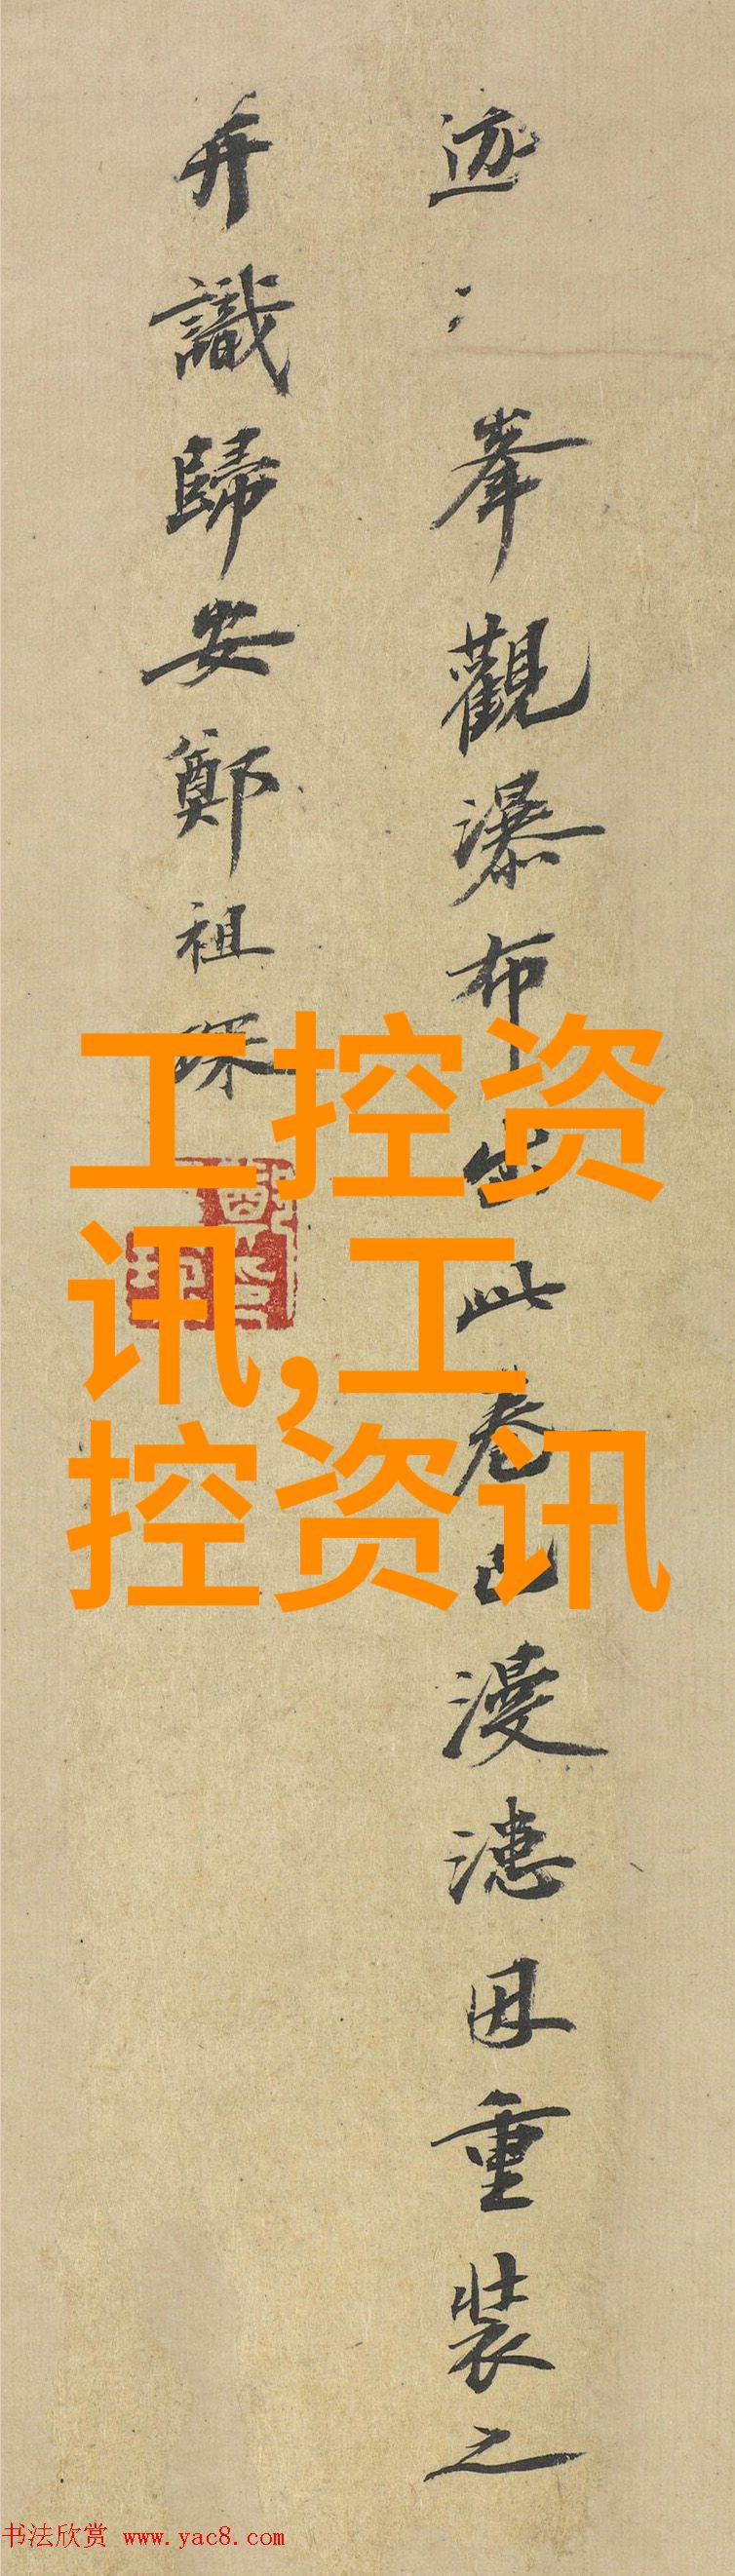 峯觀瀑布此卷已漫漶因重裝之
弁識歸安鄭祖琛
工控资
讯,工
控资讯
书法欣赏 www.yac8.com